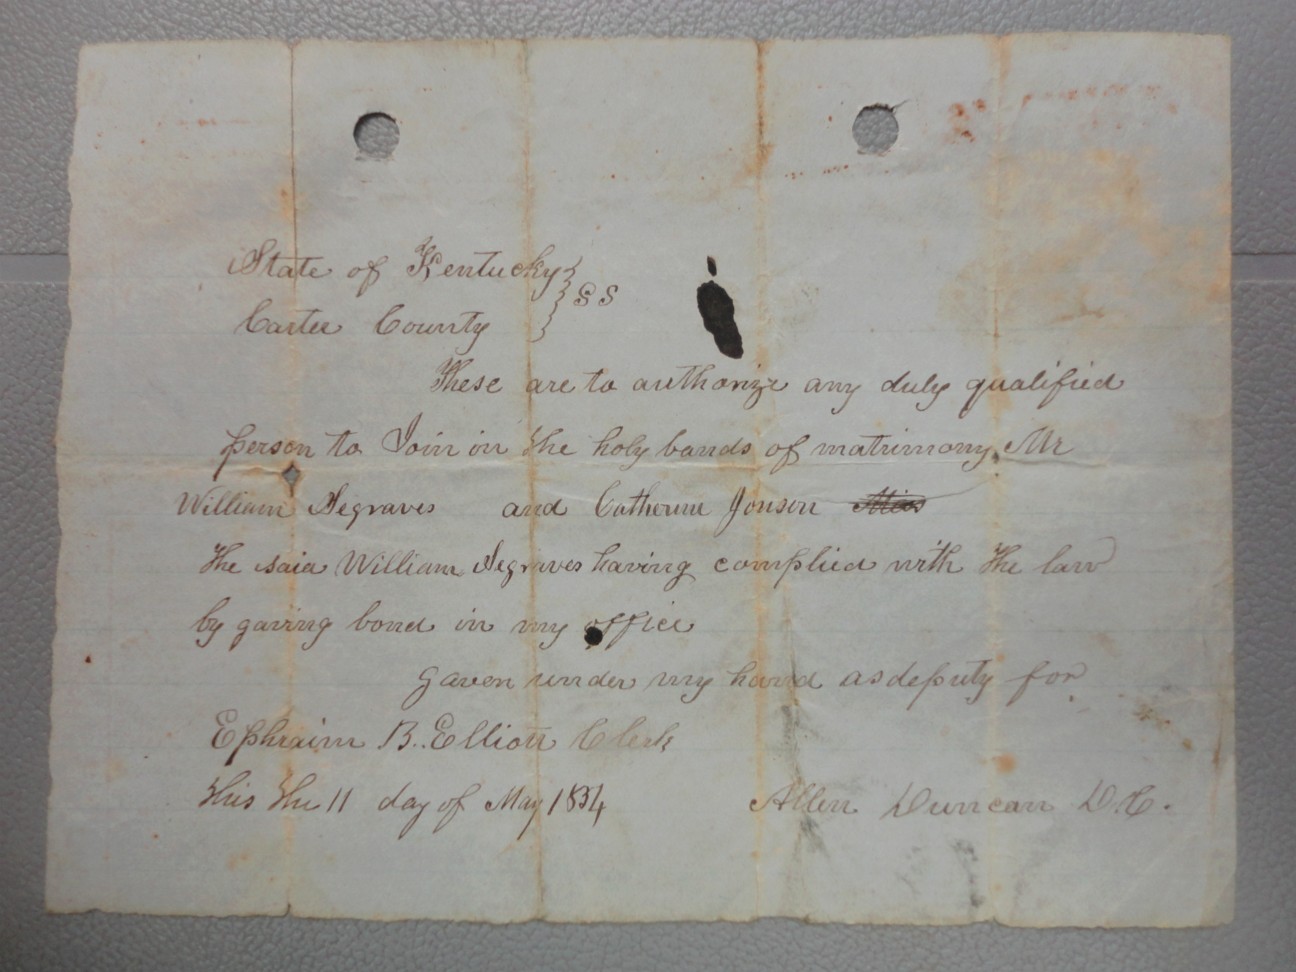 State of Kentucky } SS
Carter County
These are to authorize any duly qualified
person to Join in the holy bands of matrimony Mr
William Segraves and Catherine Jonson
the said William Segraves having complied with the law
by gaving bond in my office
gaven under my hand as deputy for
Ephraim B. Elliott Clerk
this the 11 day of May 1854
Allen Duncan D.C.